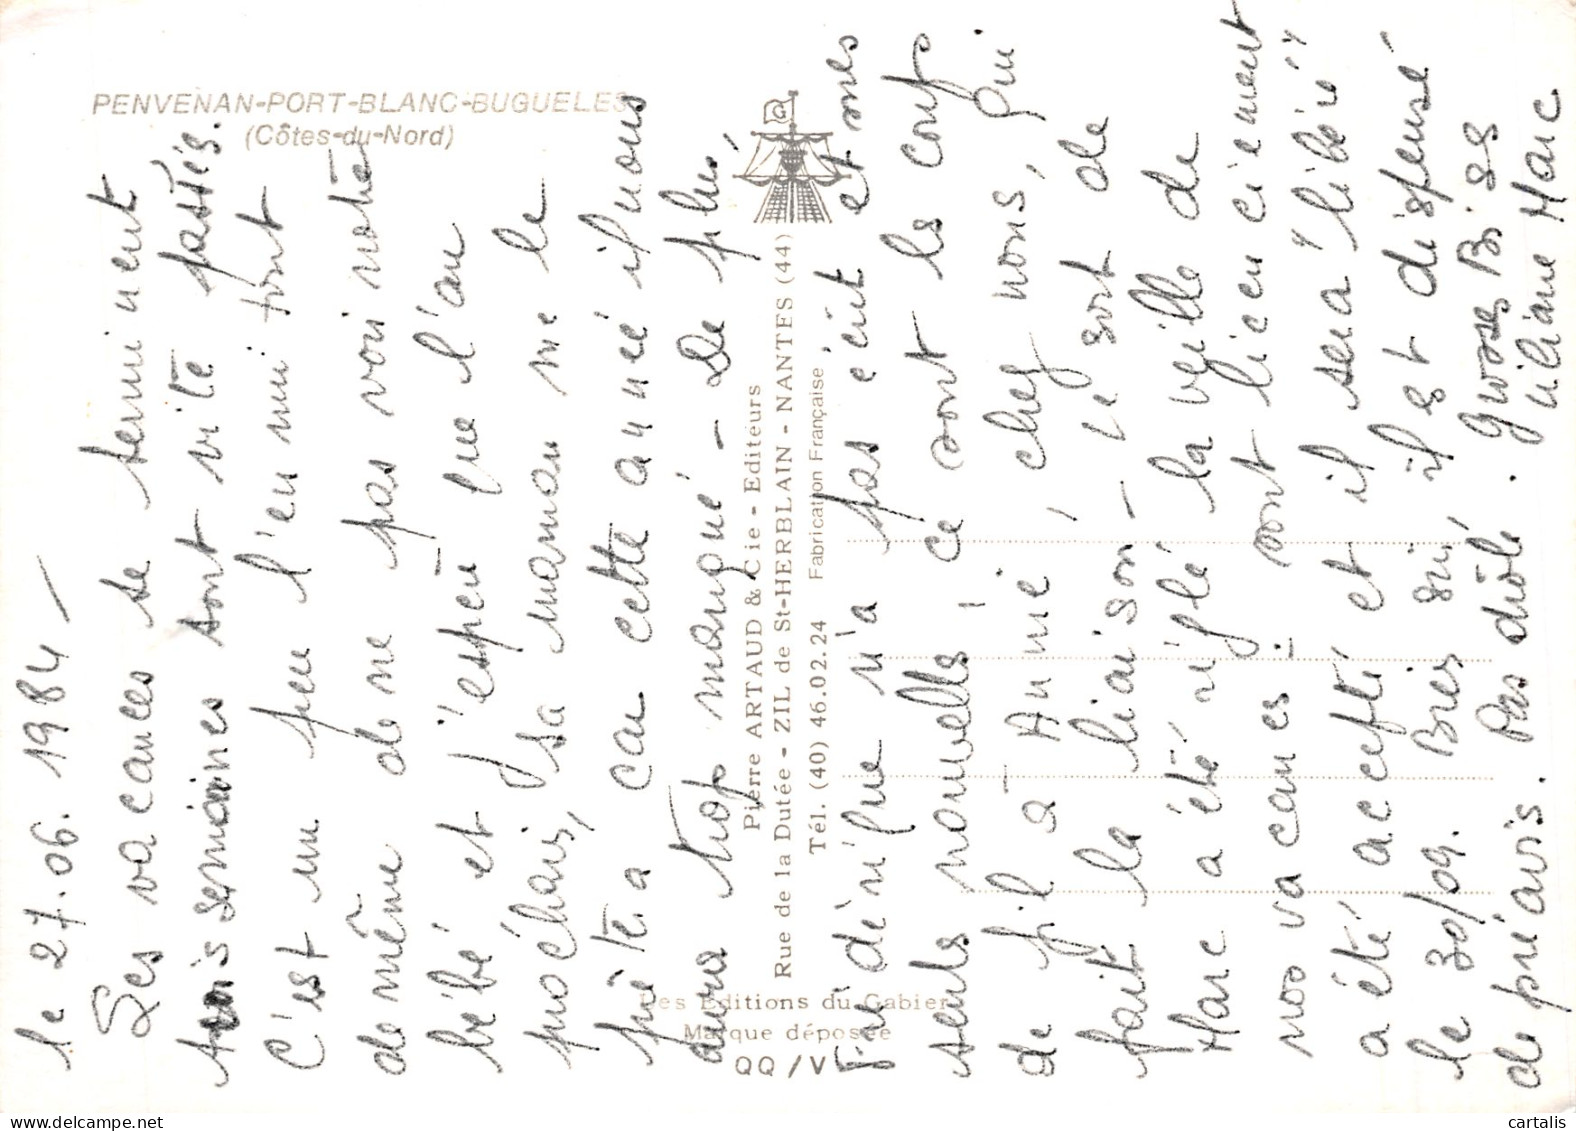 PENVENAN-PORT-BLANC-BUGUELES
(Côtes-du-Nord)
le 27.06.1984 —
Les vacances se terminent
trois semaines sont vite passées.
C'est un peu l'ennui tout
de même de ne pas voir notre
bébé et j'espère que l'an
prochain, sa maman me le
prêtera car cette année il nous
aura trop manqué - De plus,
Véronique n'a pas écrit et mes
seuls nouvelles, ce sont les coups
de fil à Annie, chez nous, qui
fait la liaison - Le sort de
Marc a été réglé la veille de
nos vacances : sont licenciement
a été accepté et il sera "libéré"
le 30/09. Bien sûr, il est dispensé
de préavis. Pas drôle. Grosses Bises
Liliane Marc
Pierre ARTAUD & Cie - Editeurs
Rue de la Dutée - ZIL de St-HERBLAIN - NANTES (44)
Tél. (40) 46.02.24 Fabrication Française
Les Editions du Gabier
Marque déposée
QQ/V
cartalis